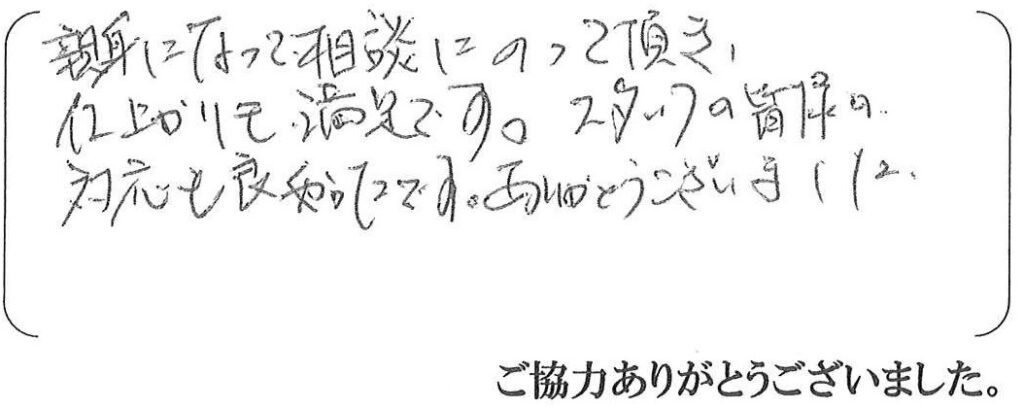 親身になって相談にのって頂き、
仕上がりも満足です。スタッフの皆様の
対応も良かったです。ありがとうございました。
ご協力ありがとうございました。